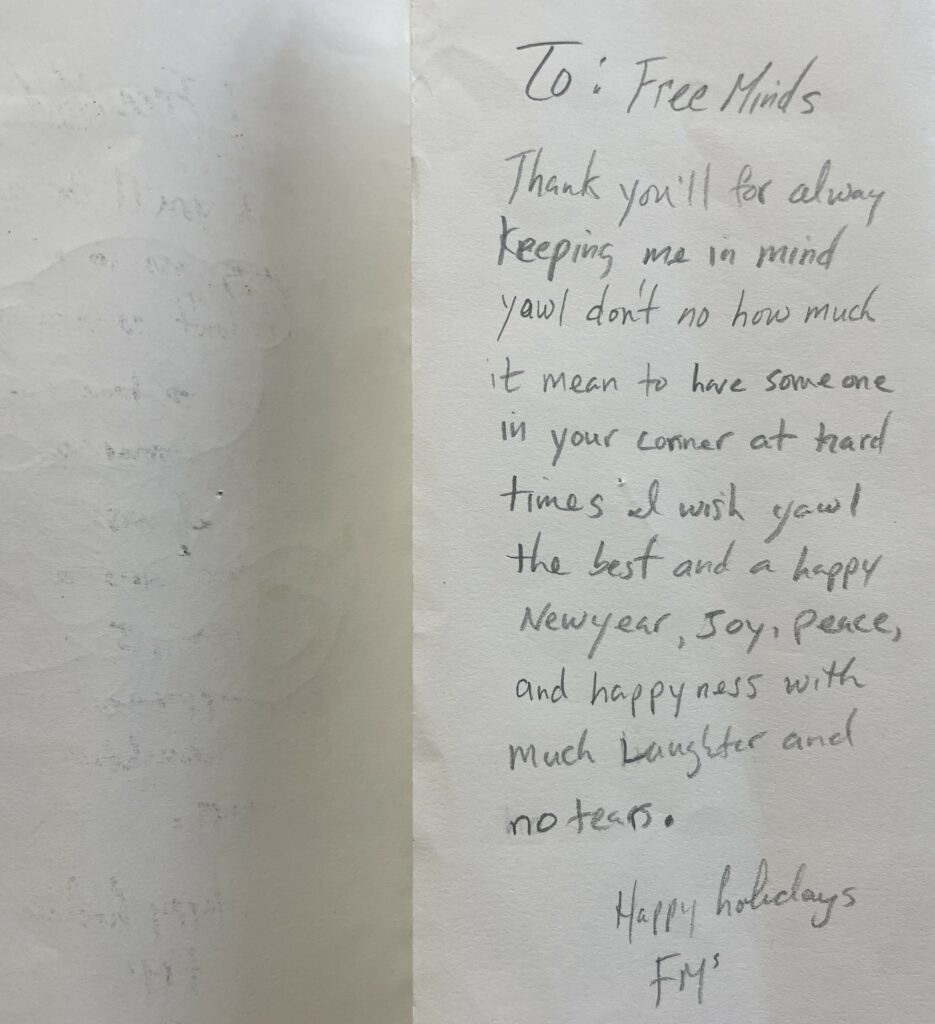 To: Free Minds
Thank you'll for alway
keeping me in mind
yawl don't no how much
it mean to have someone
in your corner at hard
times I wish yawl
the best and a happy
Newyear, Joy, peace,
and happyness with
much Laughter and
no tears.
Happy holidays
FM's